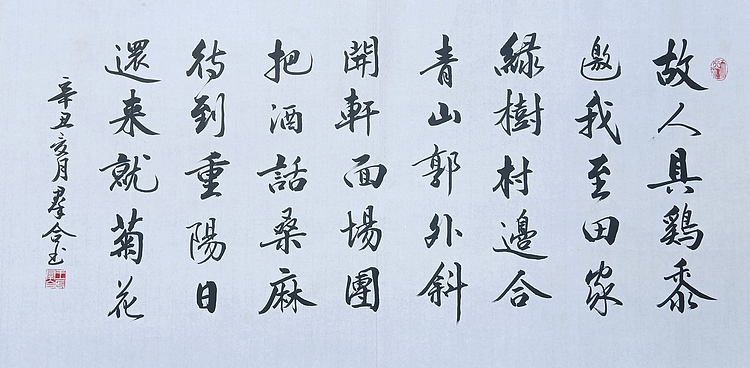 故人具鷄黍
邀我至田家
緑樹村邊合
青山郭外斜
開軒面場團
把酒話桑麻
待到重陽日
還来就菊花
辛丑亥月羣合